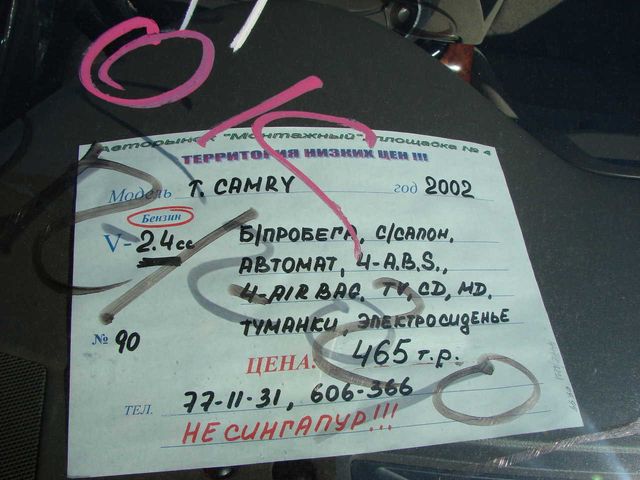 Авторынок "Монтажный", площадка № 4
ТЕРРИТОРИЯ НИЗКИХ ЦЕН !!!
Модель T. CAMRY год 2002
Бензин
V- 2.4 cc Б/ПРОБЕГА, С/САЛОН,
АВТОМАТ, 4-A.B.S.,
4-AIR BAG. TV, CD, MD.
№ 90 ТУМАНКИ, ЭЛЕКТРОСИДЕНЬЕ
ЦЕНА: 465 т.р.
ТЕЛ. 77-11-31, 606-366
НЕ СИНГАПУР!!!